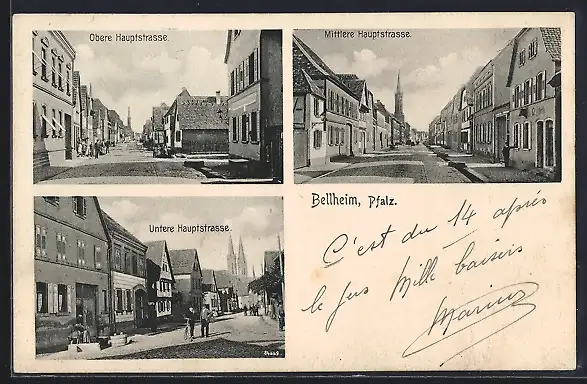 Obere Hauptstrasse.
Mittlere Hauptstrasse.
Untere Hauptstrasse.
Bellheim, Pfalz.
C'est du 14 après
le jus Mille baisers
Marius